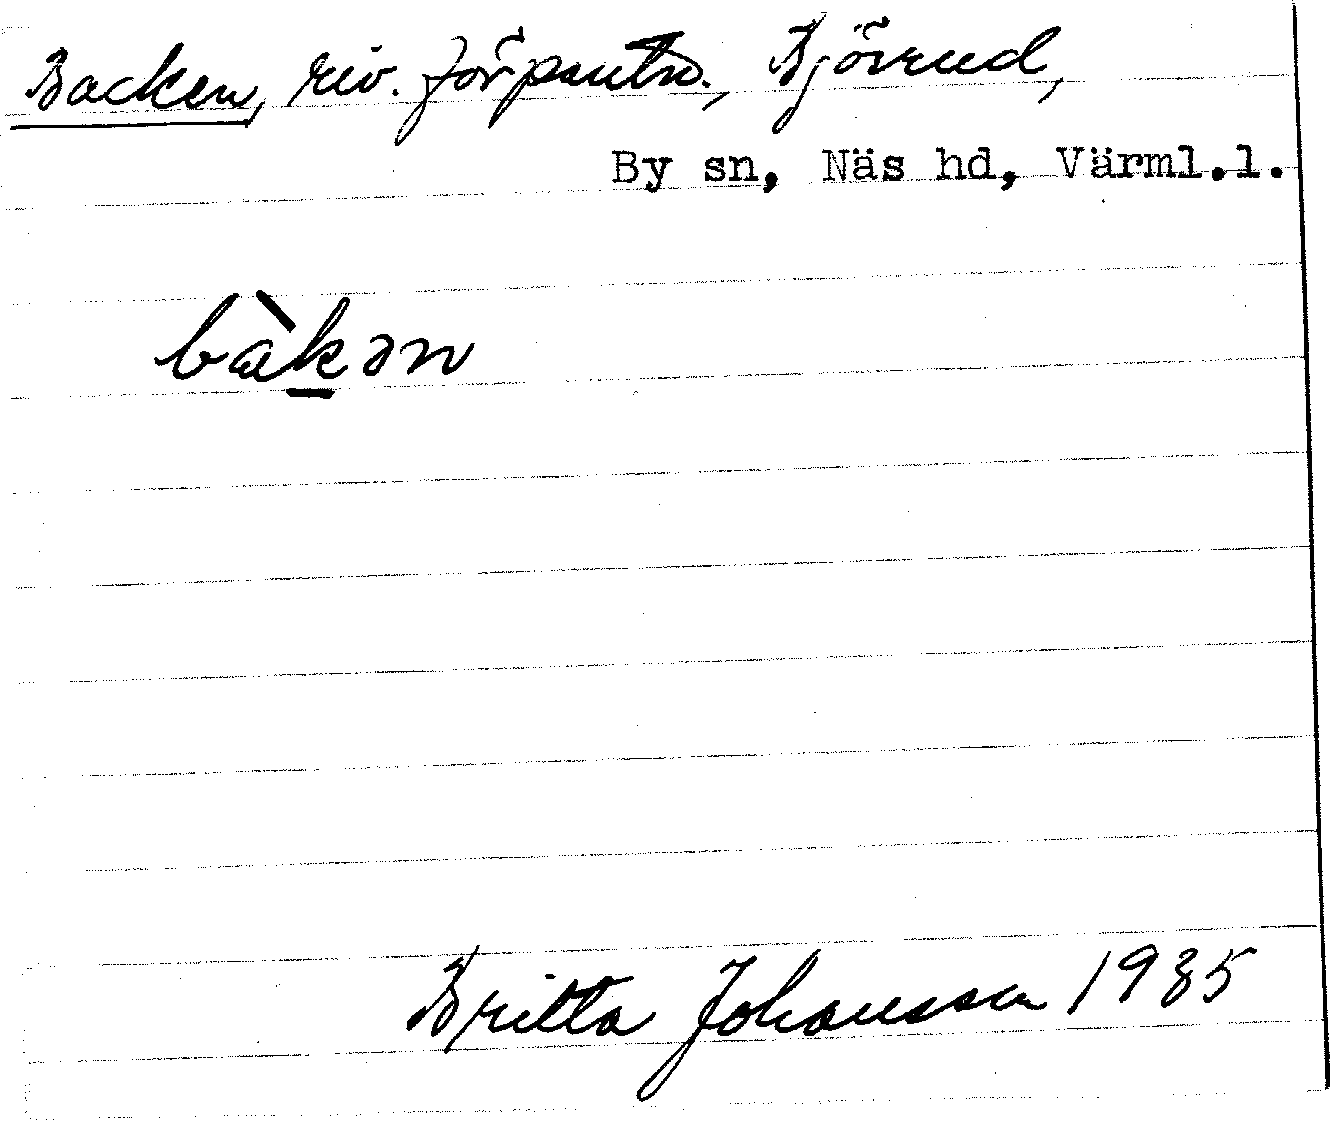 Backen, riv. förpantn., Björrud,
By sn, Näs hd, Värml.l.
bàk̲ən
Britta Johansson 1985